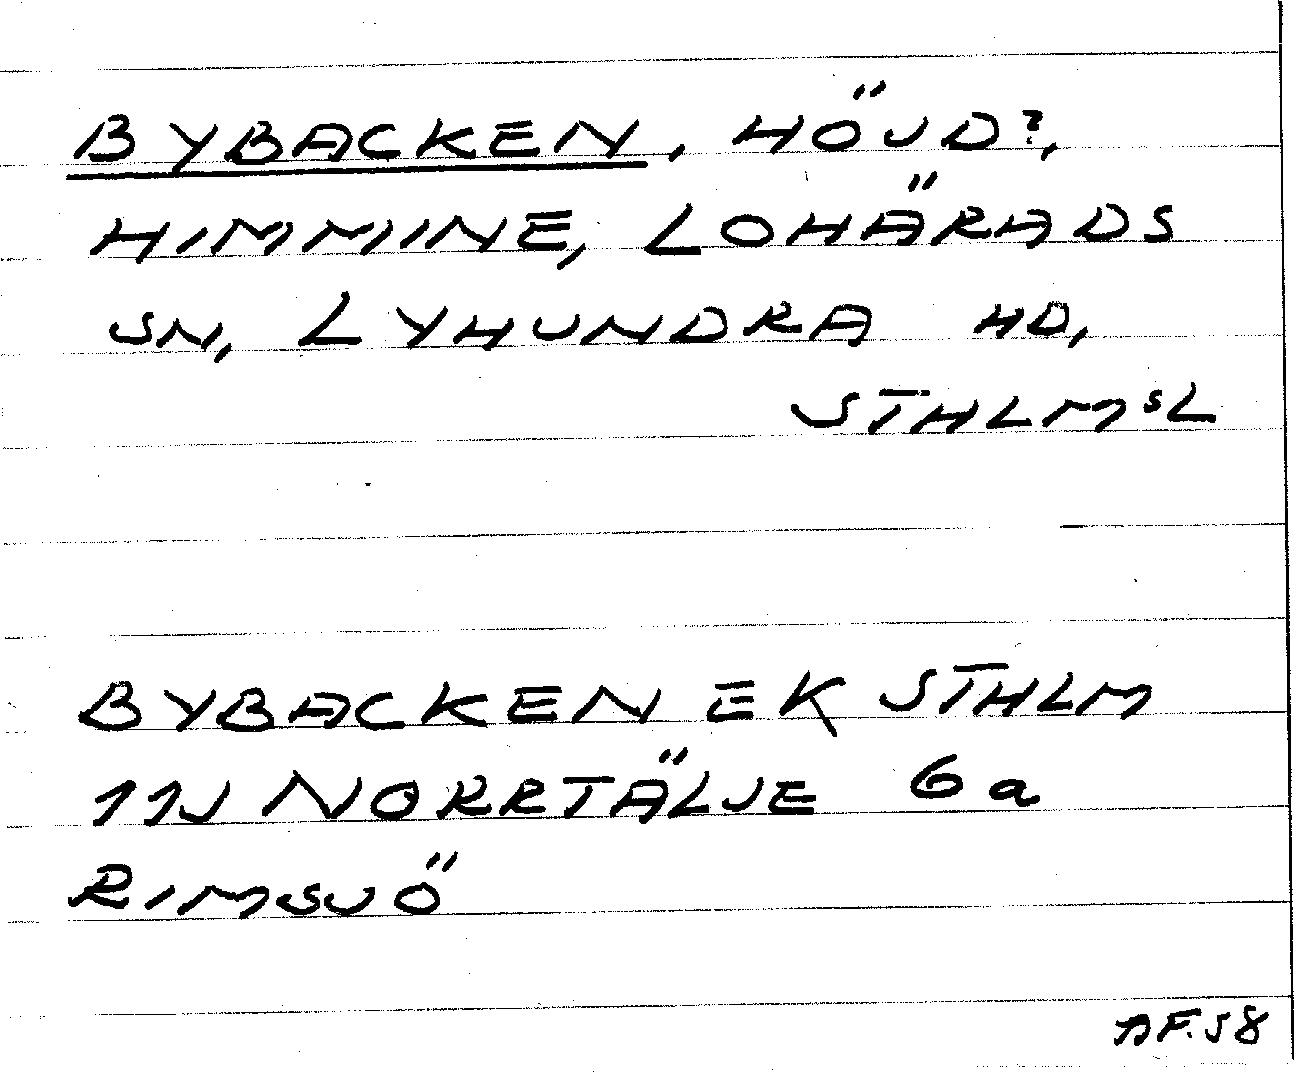 BYBACKEN, HÖJD?,
HIMMINE, LOHÄRADS
SN, LYHUNDRA HD,
STHLMSL
BYBACKEN EK STHLM
11J NORRTÄLJE 6a
RIMSJÖ